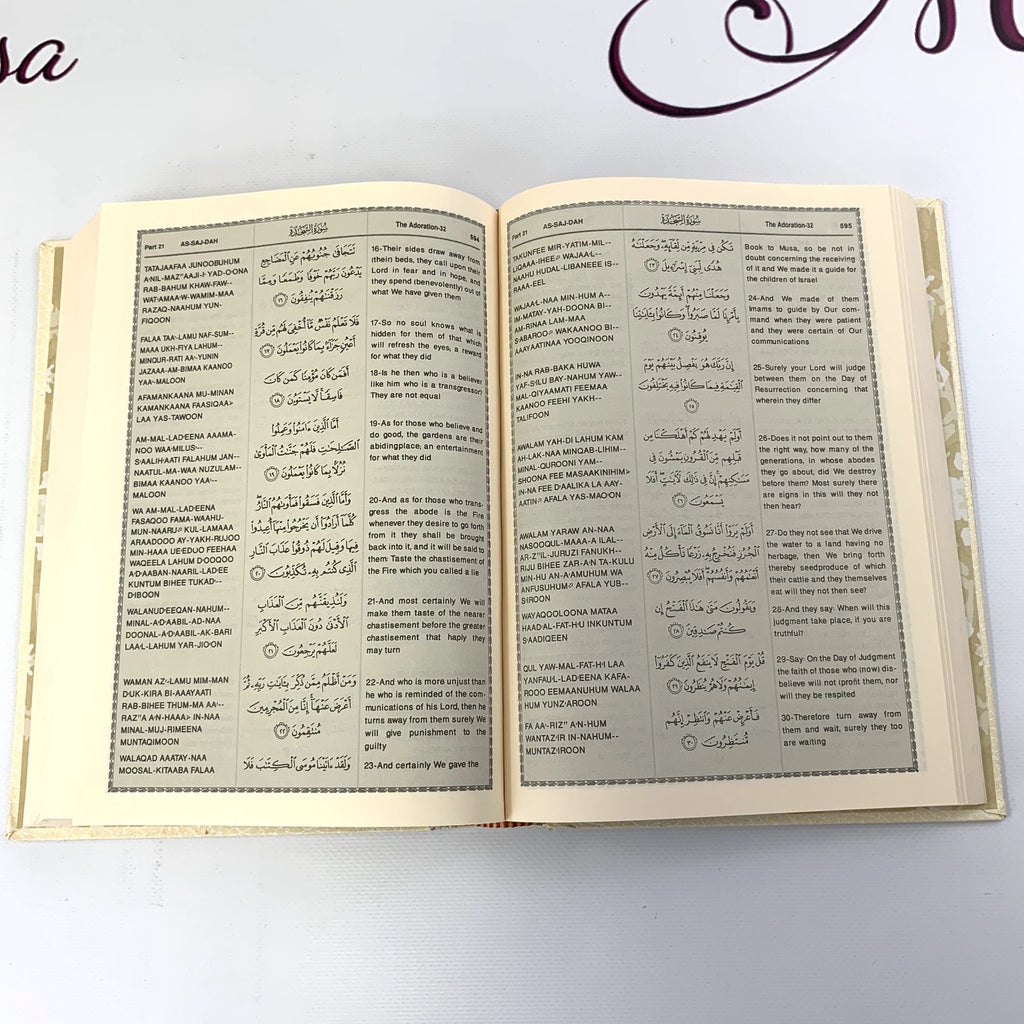 sa
Part 21
AS-SAJ-DAH
سورة السجدة
The Adoration-32
594
TATAJAAFAA JUNOOBUHUM
RAB-BAHUM KHAW-FAW--
WAT-AMAA-W-WAMIM-MAA
RAZAQ-NAAHUM YUN-
FIQOON
FALAA TAA-LAMU NAF-SUM--
MAAA UKH-FIYA LAHUM--
MINQUR-RATI AA-YUNIN
JAZAAA-AM-BIMAA KAANOO
YAA-MALOON
AFAMANKAANA MU-MINAN
KAMANKAANA FAASIQAA>
LAA YAS-TAWOON
AM-MAL-LADEENA AAAMA-
NOO WAA'MILUS--
S-AALIH-AATI FALAHUM JAN--
NAATUL-MA-WAA NUZULAM--
BIMAA KAANOO YAA--
MALOON
WA AM-MAL-LADEENA
FASAQOO FAMA-WAAHU-
MUN-NAARU KUL-LAMAAA
ARAADOOO AY-YAKH-RUJOO
MIN-HAAA UEEDUO FEEHAA
WAQEELA LAHUM DOOQOO
A-D-AABAN-NAARIL-LADEE
KUNTUM BIHEE TUKAD--
DIBOON
WALANUDEEQAN-NAHUM--
MINAL-A-D-AABIL-AD-NAA
DOONAL-A-D-AABIL-AK-BARI
LAA-L-LAHUM YAR-JIOON
WAMAN AZ-LAMU MIM-MAN
DUK-KIRA BI-AAAYAATI
RAB-BIHEE THUM-MA AA--
RAZ"A A-N-HAAA> IN-NAA
MINAL-MUJ-RIMEENA
MUNTAQIMOON
WALAQAD AAATAY-NAA
MOOSAL-KITAABA FALAA
تَتَجَافَىٰ جُنُوبُهُمْ عَنِ الْمَضَاجِعِ
يَدْعُونَ رَبَّهُمْ خَوْفًا وَطَمَعًا وَمِمَّا
رَزَقْنَاهُمْ يُنفِقُونَ ١٦
فَلَا تَعْلَمُ نَفْسٌ مَّا أُخْفِيَ لَهُم مِّن قُرَّةِ
أَعْيُنٍ جَزَاءً بِمَا كَانُوا يَعْمَلُونَ ١٧
أَفَمَن كَانَ مُؤْمِنًا كَمَن كَانَ
فَاسِقًا لَّا يَسْتَوُونَ ١٨
أَمَّا الَّذِينَ ءَامَنُوا وَعَمِلُوا
الصَّالِحَاتِ فَلَهُمْ جَنَّاتُ الْمَأْوَىٰ
نُزُلًا بِمَا كَانُوا يَعْمَلُونَ ١٩
وَأَمَّا الَّذِينَ فَسَقُوا فَمَأْوَاهُمُ النَّارُ
كُلَّمَا أَرَادُوا أَن يَخْرُجُوا مِنْهَا أُعِيدُوا
فِيهَا وَقِيلَ لَهُمْ ذُوقُوا عَذَابَ النَّارِ
الَّذِي كُنتُم بِهِ تُكَذِّبُونَ ٢٠
وَلَنُذِيقَنَّهُم مِّنَ الْعَذَابِ
الْأَدْنَىٰ دُونَ الْعَذَابِ الْأَكْبَرِ
لَعَلَّهُمْ يَرْجِعُونَ ٢١
وَمَنْ أَظْلَمُ مِمَّن ذُكِّرَ بِآيَاتِ رَبِّهِ ثُمَّ
أَعْرَضَ عَنْهَا إِنَّا مِنَ الْمُجْرِمِينَ
مُنتَقِمُونَ ٢٢
وَلَقَدْ ءَاتَيْنَا مُوسَى الْكِتَابَ فَلَا
16-Their sides draw away from
(their) beds, they call upon their
Lord in fear and in hope, and
they spend (benevolently) out of
what We have given them
17-So no soul knows what is
hidden for them of that which
will refresh the eyes; a reward
for what they did
18-Is he then who is a believer
like him who is a transgressor?
They are not equal
19-As for those who believe and
do good, the gardens are their
abidingplace; an entertainment
for what they did
20-And as for those who trans-
gress the abode is the Fire
whenever they desire to go forth
from it they shall be brought
back into it, and it will be said to
them: Taste the chastisement of
the Fire which you called a lie
21-And most certainly We will
make them taste of the nearer
chastisement before the greater
chastisement that haply they
may turn
22-And who is more unjust than
he who is reminded of the com-
munications of his Lord, then he
turns away from them surely We
will give punishment to the
guilty
23-And certainly We gave the
Part 21
AS-SAJ-DAH
سورة السجدة
The Adoration-32
595
TAKUNFEE MIR-YATIM-MIL--
LIQAAA-IHEE WAJAAL--
NAAHU HUDAL-LIBANEEE IS--
RAAA-EEL
WAJAAL-NAA MIN-HUM A--
IM-MATAY-YAH-DOONA BI--
AM-RINAA LAM-MAA
S-ABAROO WAKAANOO BI--
AAAYAATINAA YOOQINOON
IN-NA RAB-BAKA HUWA
YAF-SILU BAY-NAHUM YAW--
MAL-QIYAAMATI FEEMAA
KAANOO FEEHI YAKH--
TALIFOON
AWALAM YAH-DI LAHUM KAM
AH-LAK-NAA MINQAB-LIHIM--
MINAL-QUROONI YAM--
SHOONA FEE MASAAKINIHIM>
IN-NA FEE D-AALIKA LA AAY-
AATIN AFALA YAS-MAOON
AWALAM YARAW AN-NAA
NASOOQUL-MAAA-A ILAL--
AR-Z"IL-JURUZI FANUKH--
RIJU BIHEE ZAR-A-N TA-KULU
MIN-HU AN-A-AMUHUM WA
ANFUSUHUM AFALA YUB--
S-IROON
WAYAQOOLOONA MATAA
HAAD-AL-FAT-HU INKUNTUM
S-AADIQEEN
QUL YAW-MAL-FAT-HI LAA
YANFAUL-LADEENA KAFA-
ROOO EEMAANUHUM WALAA
HUM YUNZ-AROON
FA AA-RIZ" A-N-HUM
WANTAZ-IR IN-NAHUM--
MUNTAZ-IROON
تَكُن فِي مِرْيَةٍ مِّن لِّقَائِهِ وَجَعَلْنَاهُ
هُدًى لِّبَنِي إِسْرَائِيلَ ٢٣
وَجَعَلْنَا مِنْهُمْ أَئِمَّةً يَهْدُونَ
بِأَمْرِنَا لَمَّا صَبَرُوا وَكَانُوا بِآيَاتِنَا
يُوقِنُونَ ٢٤
إِنَّ رَبَّكَ هُوَ يَفْصِلُ بَيْنَهُمْ يَوْمَ
الْقِيَامَةِ فِيمَا كَانُوا فِيهِ يَخْتَلِفُونَ
٢٥
أَوَلَمْ يَهْدِ لَهُمْ كَمْ أَهْلَكْنَا مِن
قَبْلِهِم مِّنَ الْقُرُونِ يَمْشُونَ فِي
مَسَاكِنِهِمْ إِنَّ فِي ذَٰلِكَ لَآيَاتٍ أَفَلَا
يَسْمَعُونَ ٢٦
أَوَلَمْ يَرَوْا أَنَّا نَسُوقُ الْمَاءَ إِلَى الْأَرْضِ
الْجُرُزِ فَنُخْرِجُ بِهِ زَرْعًا تَأْكُلُ مِنْهُ
أَنْعَامُهُمْ وَأَنفُسُهُمْ أَفَلَا يُبْصِرُونَ ٢٧
وَيَقُولُونَ مَتَىٰ هَٰذَا الْفَتْحُ إِن
كُنتُمْ صَادِقِينَ ٢٨
قُلْ يَوْمَ الْفَتْحِ لَا يَنفَعُ الَّذِينَ كَفَرُوا
إِيمَانُهُمْ وَلَا هُمْ يُنظَرُونَ ٢٩
فَأَعْرِضْ عَنْهُمْ وَانتَظِرْ إِنَّهُم
مُّنتَظِرُونَ ٣٠
Book to Musa, so be not in
doubt concerning the receiving
of it and We made it a guide for
the children of Israel
24-And We made of them
Imams to guide by Our com-
mand when they were patient
and they were certain of Our
communications
25-Surely your Lord will judge
between them on the Day of
Resurrection concerning that
wherein they differ
26-Does it not point out to them
the right way, how many of the
generations, in whose abodes
they go about, did We destroy
before them? Most surely there
are signs in this will they not
then hear?
27-Do they not see that We drive
the water to a land having no
herbage, then We bring forth
thereby seedproduce of which
their cattle and they themselves
eat will they not then see?
28-And they say: When will this
judgment take place, if you are
truthful?
29-Say: On the Day of Judgment
the faith of those who (now) dis-
believe will not (profit them, nor
will they be respited
30-Therefore turn away from
them and wait, surely they too
are waiting